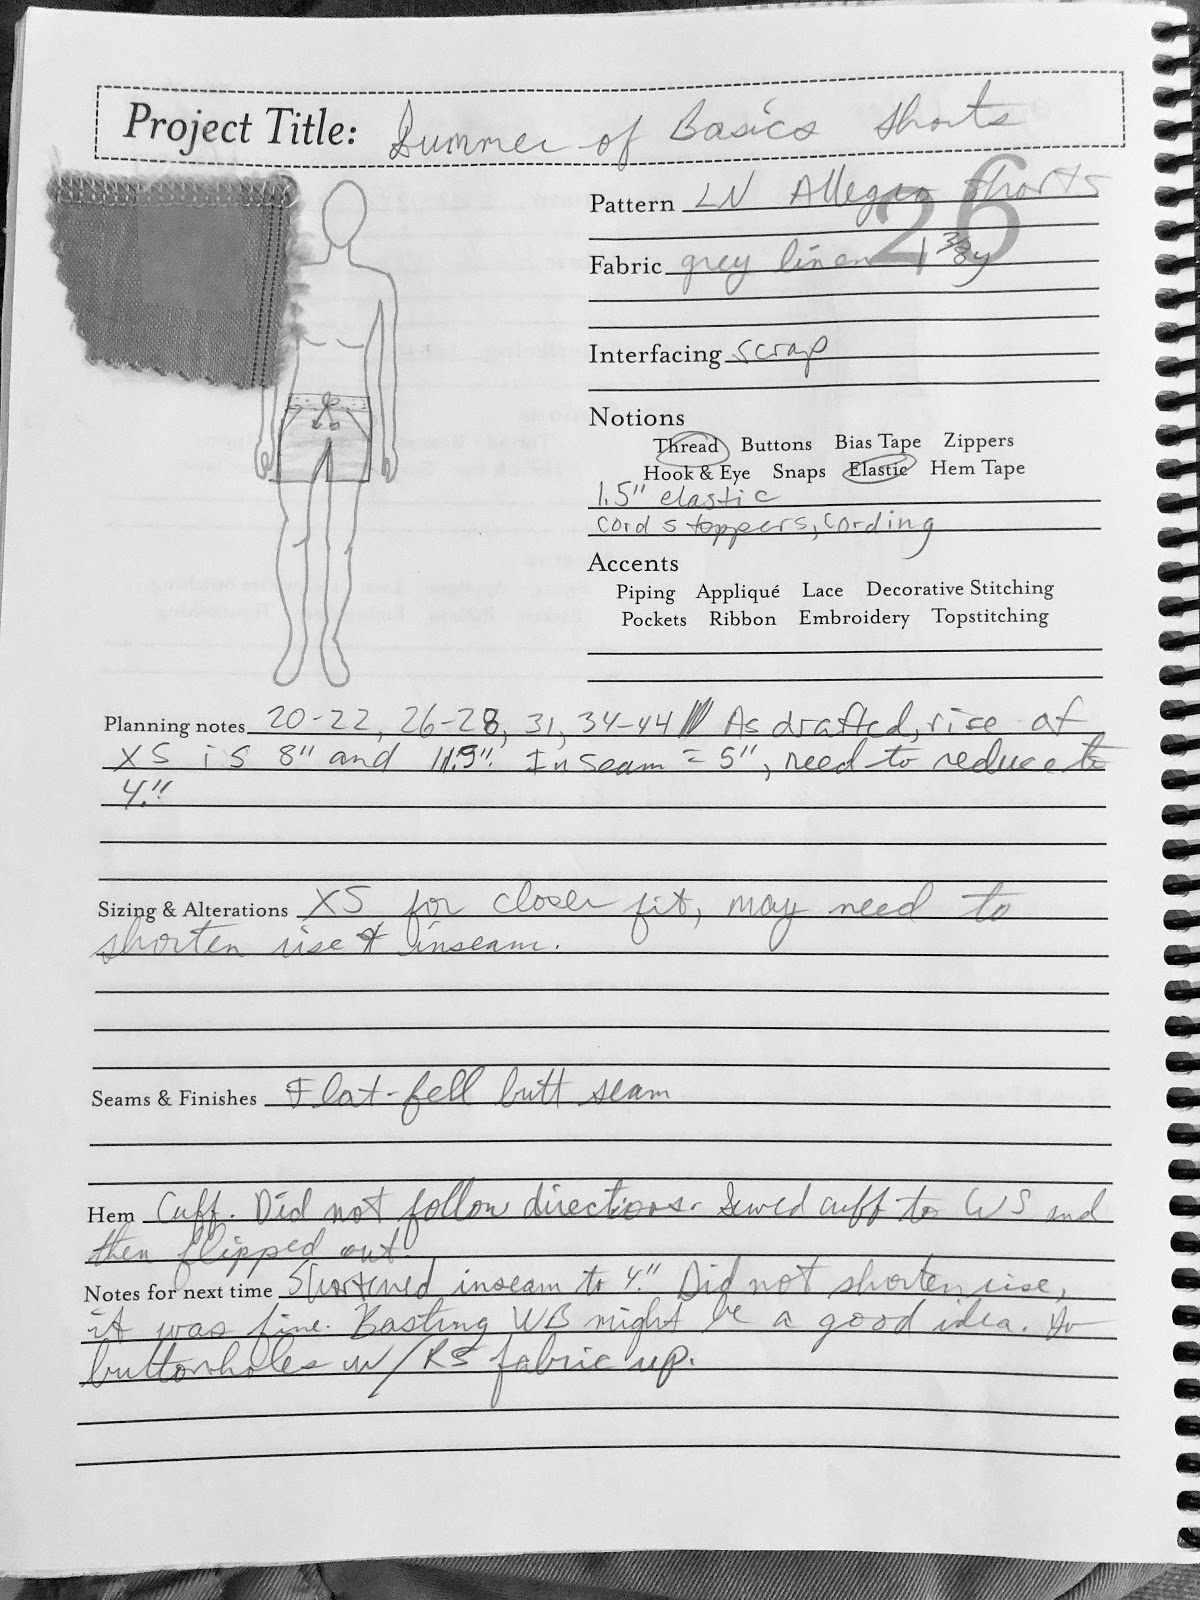 Project Title: Summer of Basics Shorts
26
Pattern LN Allegro Shorts
Fabric grey linen 1 3/8 y
Interfacing scrap
Notions
Thread Buttons Bias Tape Zippers
Hook & Eye Snaps Elastic Hem Tape
1.5" elastic
cord stoppers, cording
Accents
Piping Appliqué Lace Decorative Stitching
Pockets Ribbon Embroidery Topstitching
Planning notes 20-22, 26-28, 31, 34-44 As drafted, rise of
XS is 8" and 11.5". Inseam = 5", need to reduce to
4."
Sizing & Alterations XS for closer fit, may need to
shorten rise & inseam.
Seams & Finishes Flat-fell butt seam
Hem Cuff. Did not follow directions. Sewed cuff to WS and
then flipped out.
Notes for next time Shortened inseam to 4." Did not shorten rise,
it was fine. Basting WB might be a good idea. Do
buttonholes w/RS fabric up.